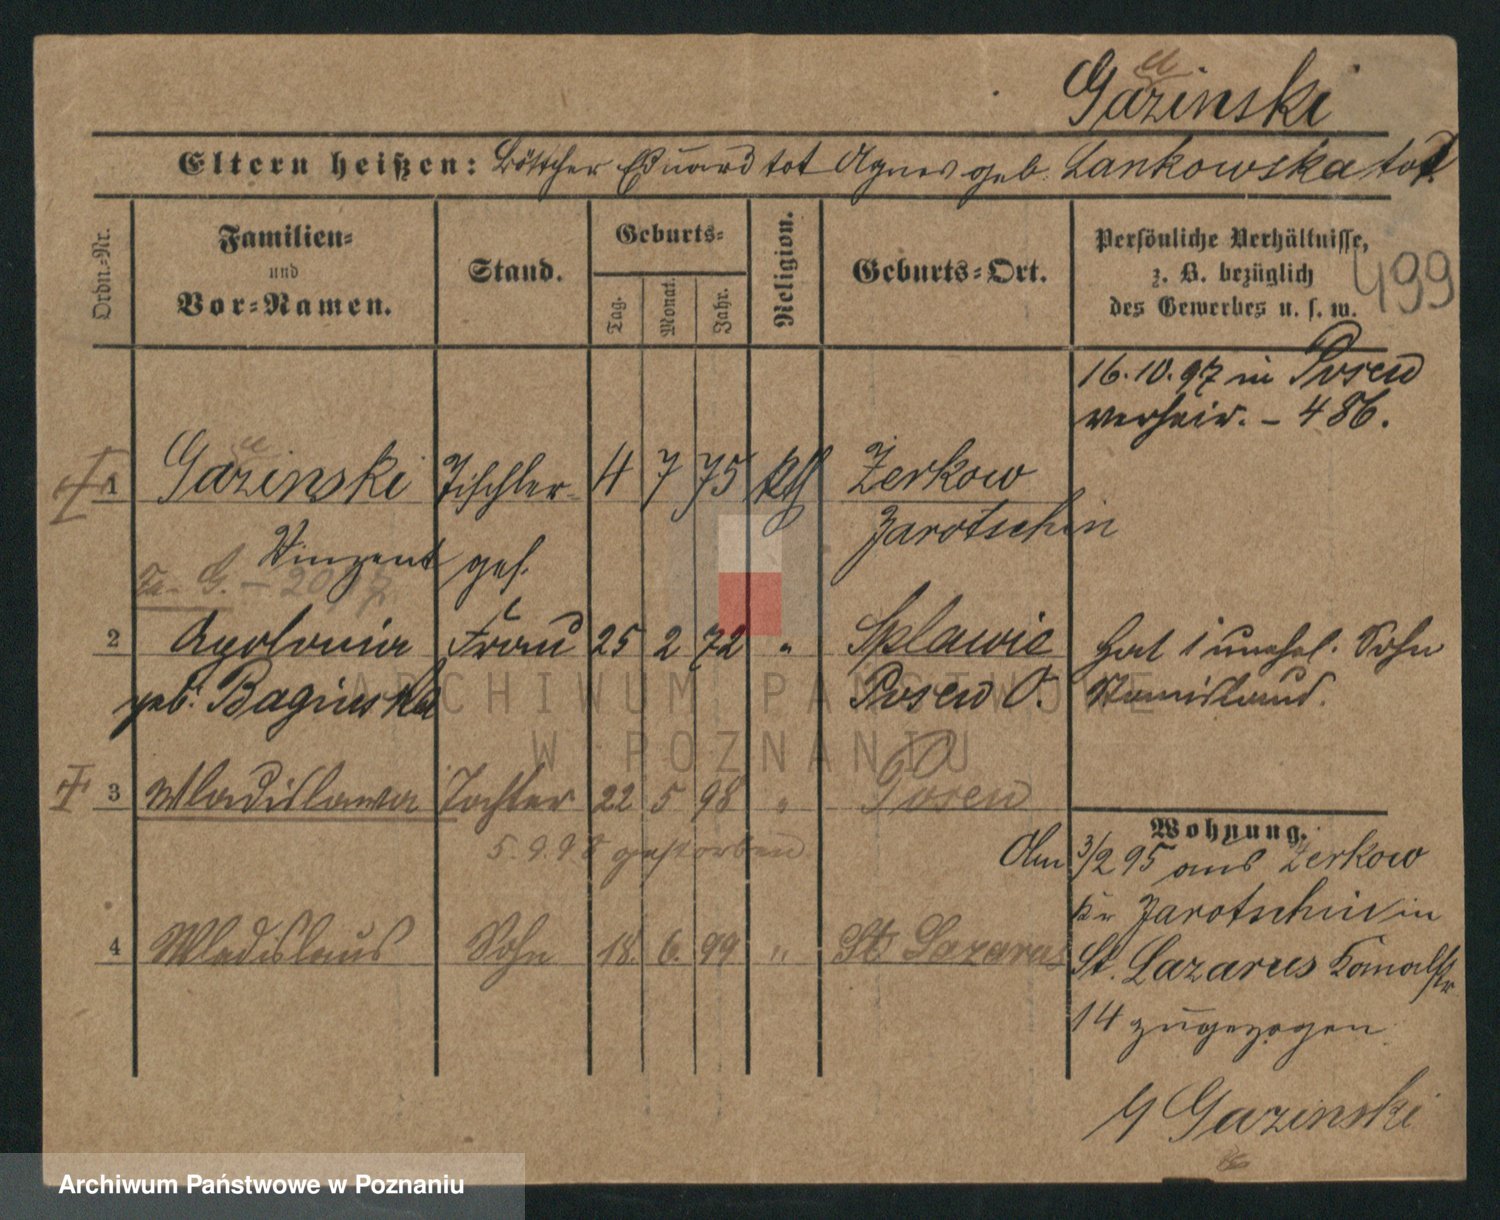 Gazinski
Eltern heißen: Böttcher Eduard tot Agnes geb. Lankowska tot.
Ordn.-Nr.
Familien-
und
Vor-Namen.
Stand.
Geburts-
Tag.
Monat.
Jahr.
Religion.
Geburts-Ort.
Persönliche Verhältnisse,
z. B. bezüglich
des Gewerbes u. s. w.
499
16.10.97 in Posen
verheir. – 486.
1 Gazinski Tischler- 4 7 75 kth Zerkow
Vinzent ges. Jarotschin
2 Apolonia Frau 25 2 72 " Splawie
geb. Baginska Posen O.
hat 1 unehl. Sohn
Stanislaus.
3 Wladislawa Tochter 22 5 98 " Posen
5.9.98 gestorben
4 Wladislaus Sohn 18. 6. 99 " St. Lazarus
Wohnung.
Am 3/2 95 aus Zerkow
Kr Jarotschin in
St. Lazarus Kanalstr
14 zugezogen.
Gazinski
ARCHIWUM PAŃSTWOWE
W POZNANIU
Archiwum Państwowe w Poznaniu